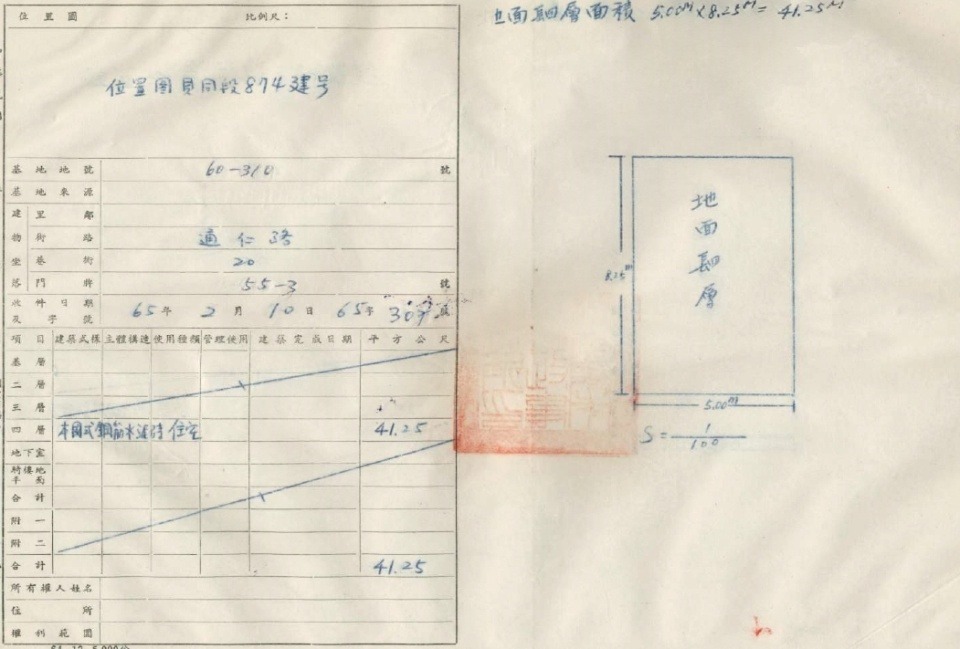 位置圖 比例尺：
位置圖見同段874建号
基地地號 60-310 號
基地來源
建 里鄰
物 街路 通仁路
坐 巷衖 20
落 門牌 55-3 號
收件日期 65年 2月 10日
及字號 65字 309號
項目 建築式樣 主體構造 使用種類 管理使用 建築完成日期 平方公尺
基層
二層
三層
四層 本國式 鋼筋水泥磚 住宅 41.25
地下室
騎樓地平面
合計
附一
附二
合計 41.25
所有權人姓名
住所
權利範圍
面積 5.00M×8.25M=41.25M
8.25M
5.00M
S=1/100